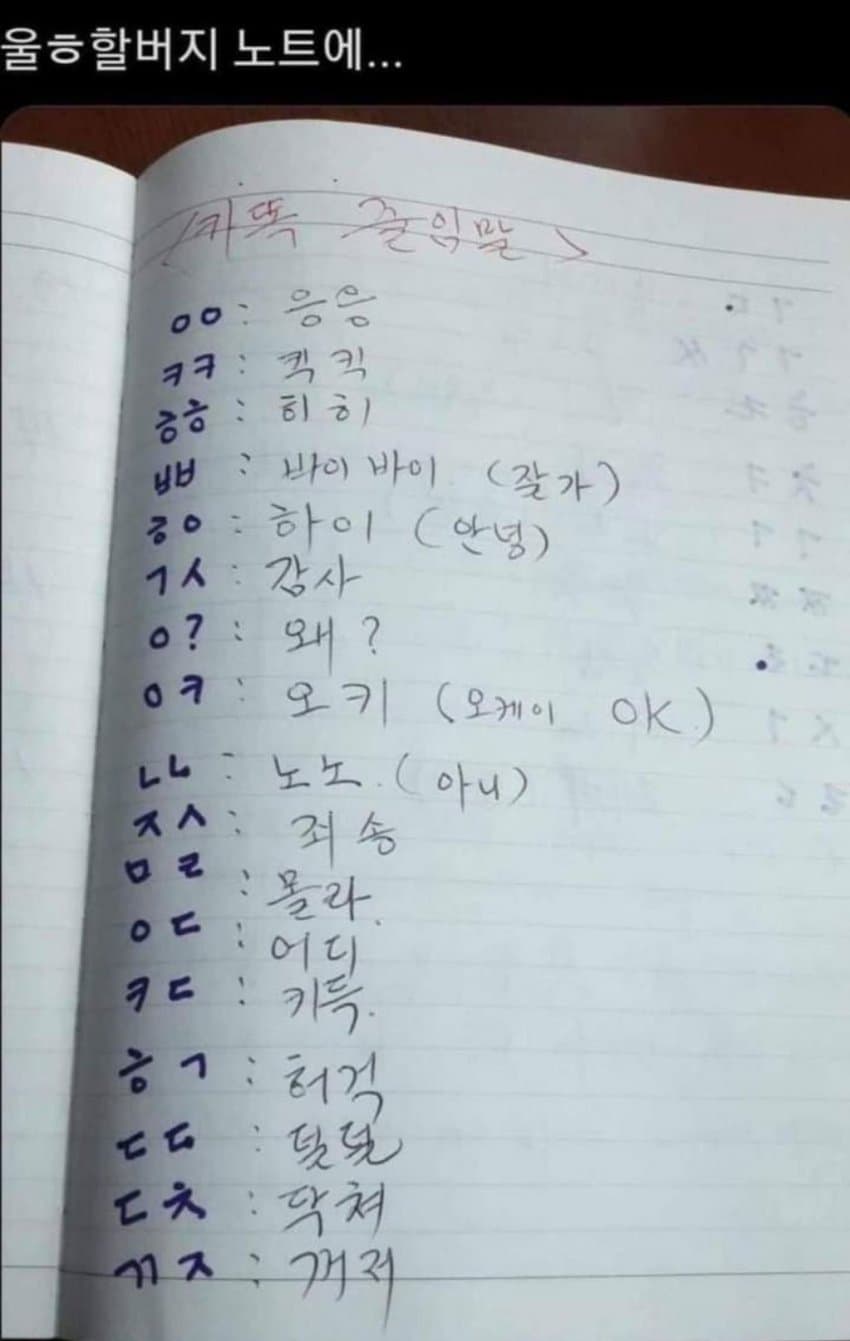 울ㅎ할버지 노트에...
<카똑 줄임말>
ㅇㅇ : 응응
ㅋㅋ : 킥킥
ㅎㅎ : 히히
ㅂㅂ : 바이바이. (잘가)
ㅎㅇ : 하이 (안녕)
ㄱㅅ : 감사
ㅇ? : 왜?
ㅇㅋ : 오키 (오케이 OK.)
ㄴㄴ : 노노. (아니)
ㅈㅅ : 죄송
ㅁㄹ : 몰라.
ㅇㄷ : 어디
ㅋㄷ : 키득.
ㅎㄱ : 허걱
ㄷㄷ : 덜덜
ㄷㅊ : 닥쳐
ㄲㅈ : 꺼저